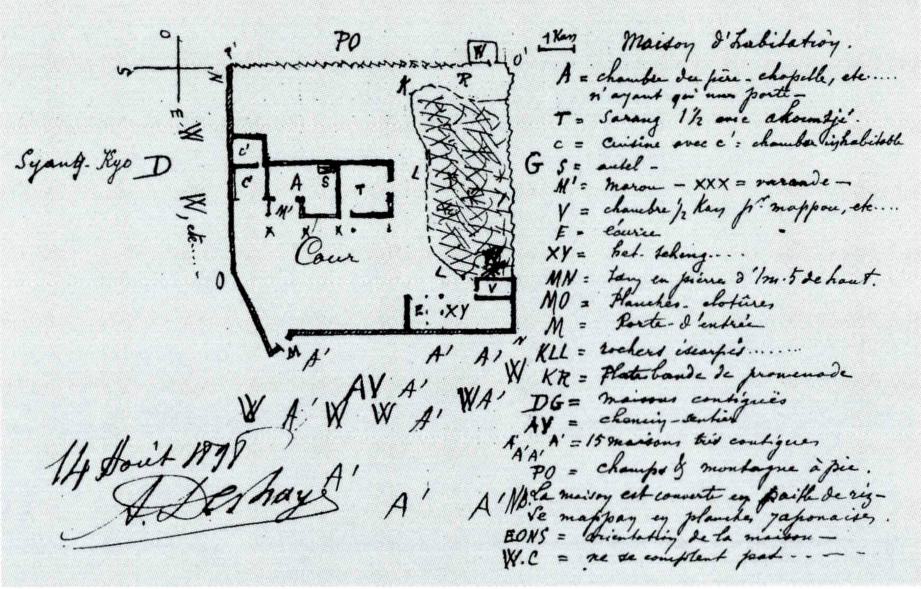 PO
1 Kan
Maison d'habitation.
A = chambre du père - chapelle, etc.....
n'ayant qu'une porte -
T = Sarang 1 1/2 avec
C = Cuisine avec C' = chambre inhabitable
G S = autel -
M' = marou - XXX = varande -
V = chambre 1/2 Kan pr mappou, etc....
E = écurie
XY = het.
MN = en pierre d'1m.5 de haut.
MO = Planches - clotûres
M = Porte - d'entrée
KLL = rochers escarpés........
KR = Plate bande de promenade
DG = maisons contiguës
AV = chemin - sentier
A' A' = 15 maisons très contigues
A'A'
PO = champs & montagne à pic.
NB. La maison est couverte en paille de riz -
Le mappou en planches japonaises.
EONS = orientation de la maison -
W.C = ne se comptent pas - . - - -
O
S
N
E
W
W, etc.....
Syang-Kyo D
C'
C
A
S
T
M'
X X X
Cour
K
R
W
O'
L
L
V
E
XY
O
M
N
A' A' A' W
W A' AV W W A' A' W A'
A'
A' A'
14 Août 1898
A. Deshayes